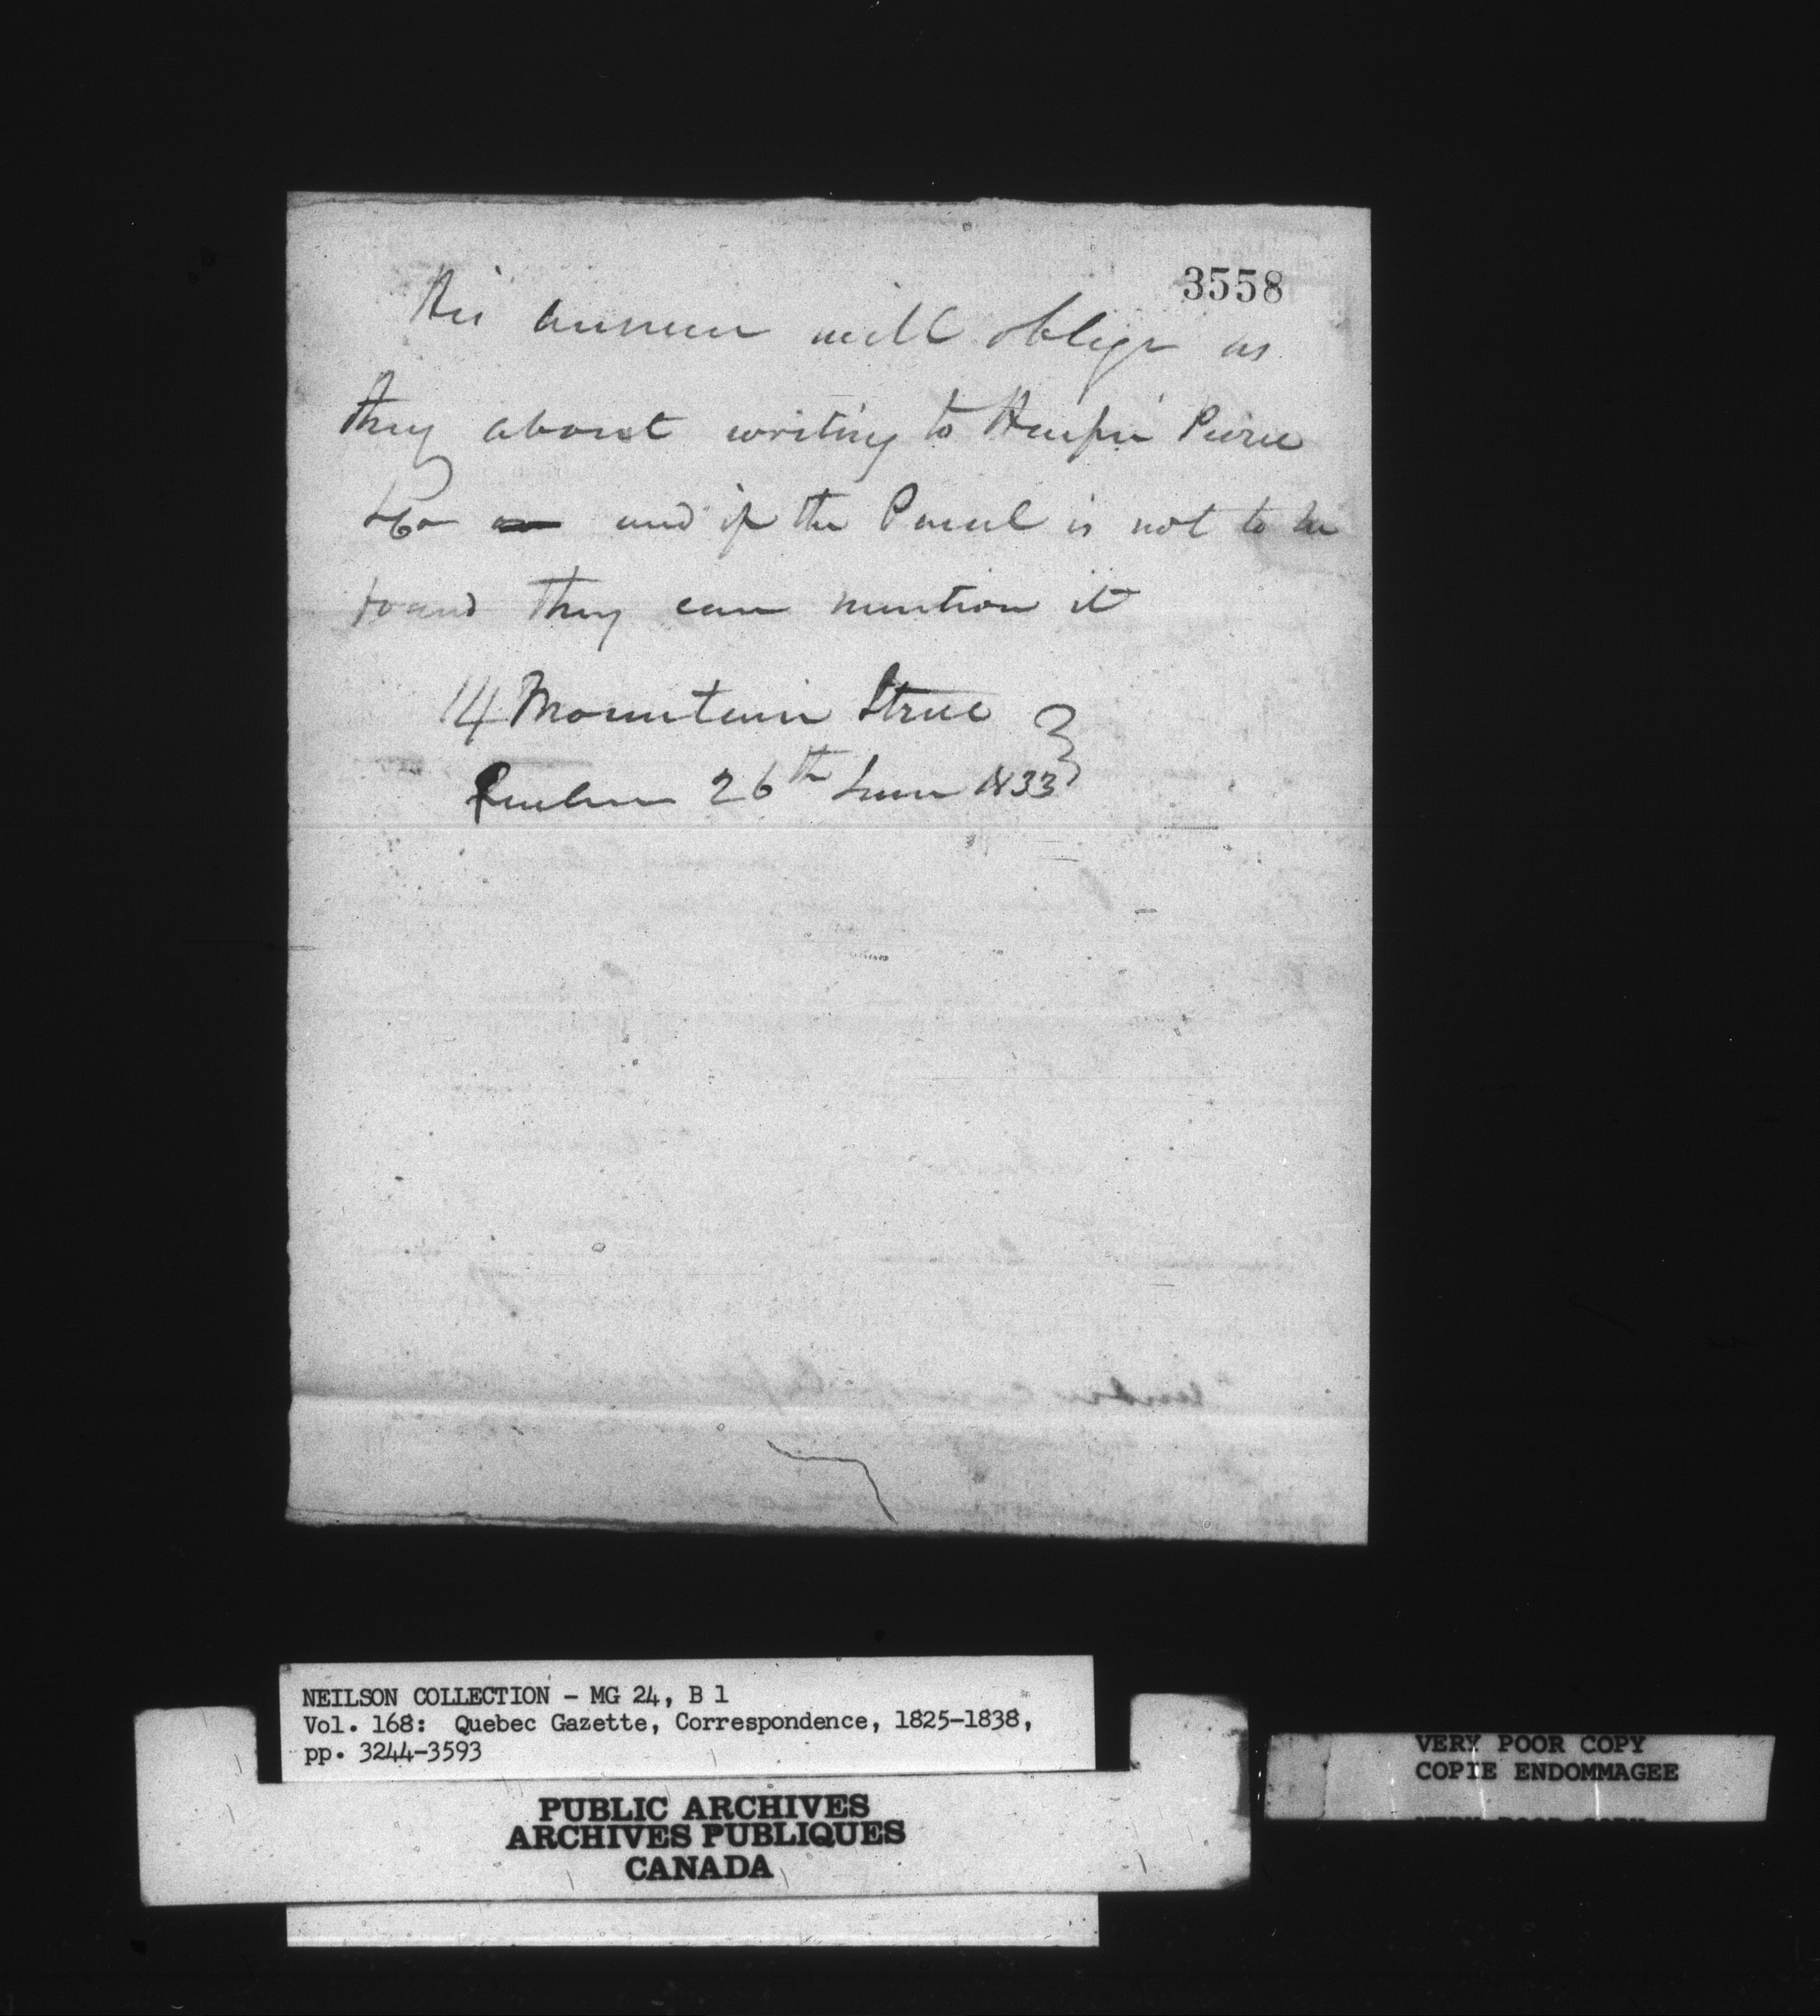 3558
His answer will oblige as
they about writing to Pierce
&Co and if the Parcel is not to be
found they can mention it
14 Mountain Stree
26th June 1833
NEILSON COLLECTION - MG 24, B 1
Vol. 168: Quebec Gazette, Correspondence, 1825-1838,
pp. 3244-3593
PUBLIC ARCHIVES
ARCHIVES PUBLIQUES
CANADA
VERY POOR COPY
COPIE ENDOMMAGEE